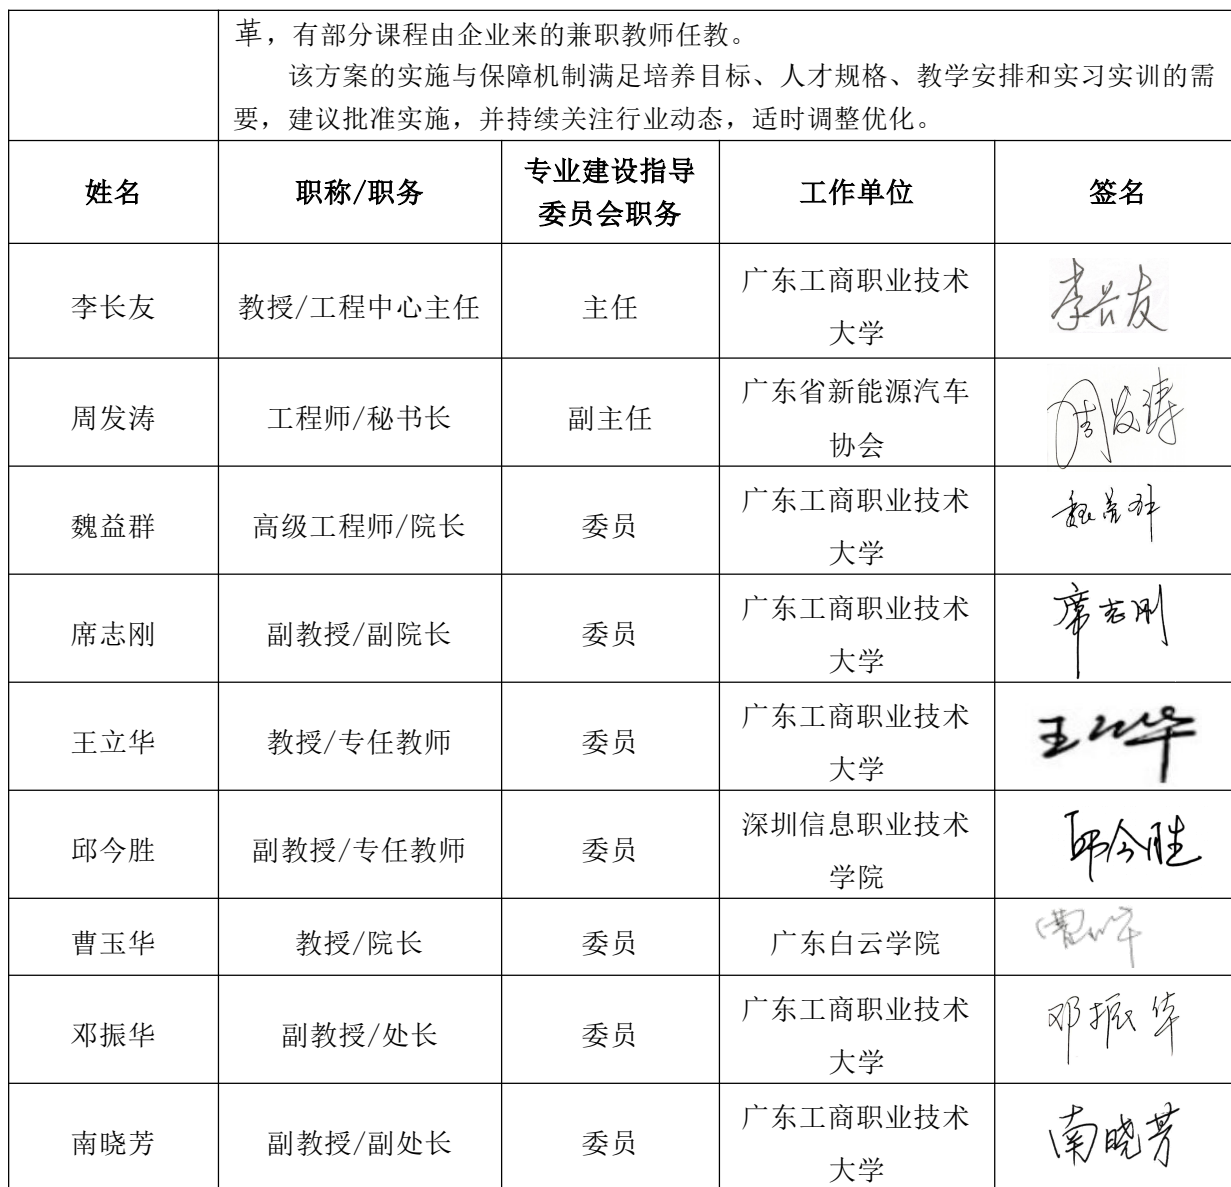 革，有部分课程由企业来的兼职教师任教。
该方案的实施与保障机制满足培养目标、人才规格、教学安排和实习实训的需
要，建议批准实施，并持续关注行业动态，适时调整优化。
姓名 职称/职务 专业建设指导 工作单位 签名
委员会职务
李长友 教授/工程中心主任 主任 广东工商职业技术 李长友
大学
周发涛 工程师/秘书长 副主任 广东省新能源汽车 周发涛
协会
魏益群 高级工程师/院长 委员 广东工商职业技术 魏益群
大学
席志刚 副教授/副院长 委员 广东工商职业技术 席志刚
大学
王立华 教授/专任教师 委员 广东工商职业技术 王立华
大学
邱今胜 副教授/专任教师 委员 深圳信息职业技术 邱今胜
学院
曹玉华 教授/院长 委员 广东白云学院 曹玉华
邓振华 副教授/处长 委员 广东工商职业技术 邓振华
大学
南晓芳 副教授/副处长 委员 广东工商职业技术 南晓芳
大学